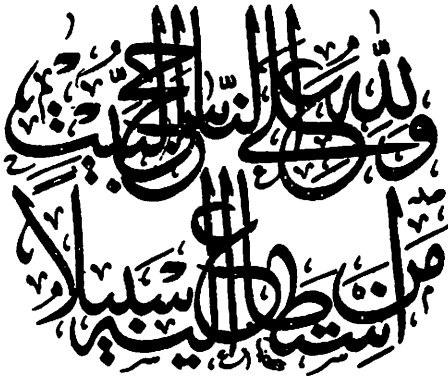 ولله على الناس حج البيت
من استطاع إليه سبيلا